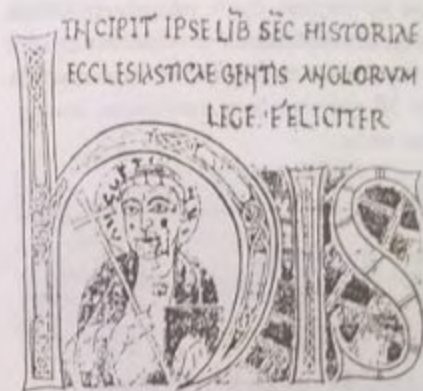 INCIPIT IPSE LIB SEC HISTORIAE
ECCLESIASTICAE GENTIS ANGLORVM
LEGE · FELICITER
hIS